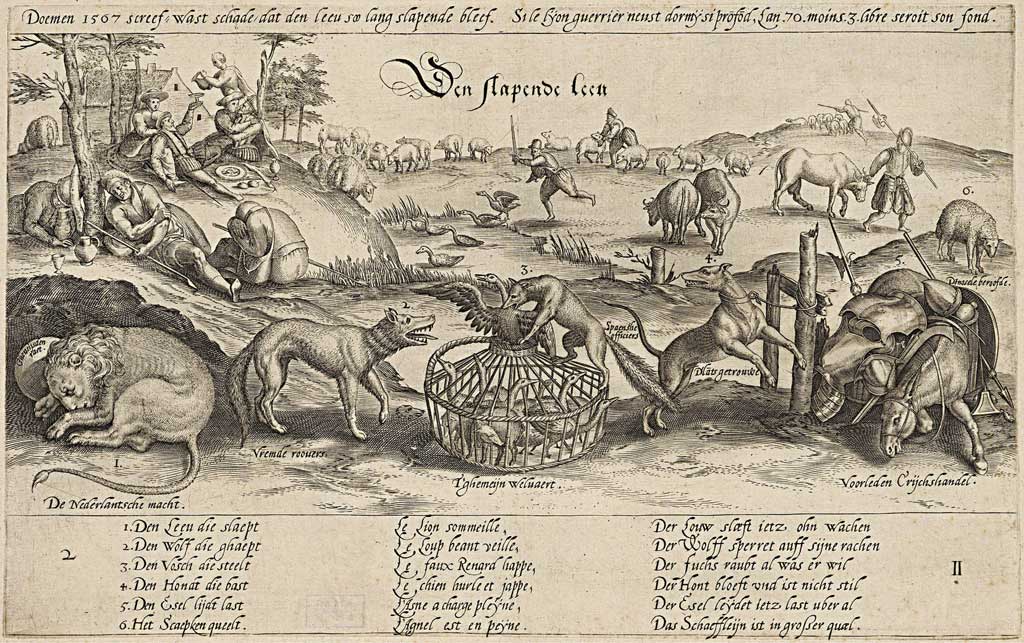 Doemen 1567 screef, wast schade dat den leeu soo lang slapende bleef. Si le Lyon guerrier neust dormy si profõd, Lan .70. moins .3. libre seroit son fond.
Den slapende leeu
6.
5.
4.
3.
2.
1.
Dinaede beroofde.
Spaensche officiers
Dlãts getrouwe
Vremde roovers.
De Nederlantsche macht.
Tghemeijn welvaert.
Voorleden Crijchshandel.
2
1. Den Leeu die slaept
2. Den Wolf die ghaept
3. Den Vosch die steelt
4. Den Hondt die bast
5. Den Esel lijdt last
6. Het Scaepken queelt.
Le Lion sommeille,
Le Loup beant veille,
Le faux Renard happe,
Le chien hurle et jappe,
L'Asne a charge pleyne,
L'Agnel est en peyne.
Der Louw slæft ietz ohn wachen
Der Wolff sperret auff sijne rachen
Der fuchs raubt al was er wil
Der Hont bloeft vnd ist nicht stil
Der Esel leydet ietz last uber al
Das Schaeffleijn ist in großer qual.
II